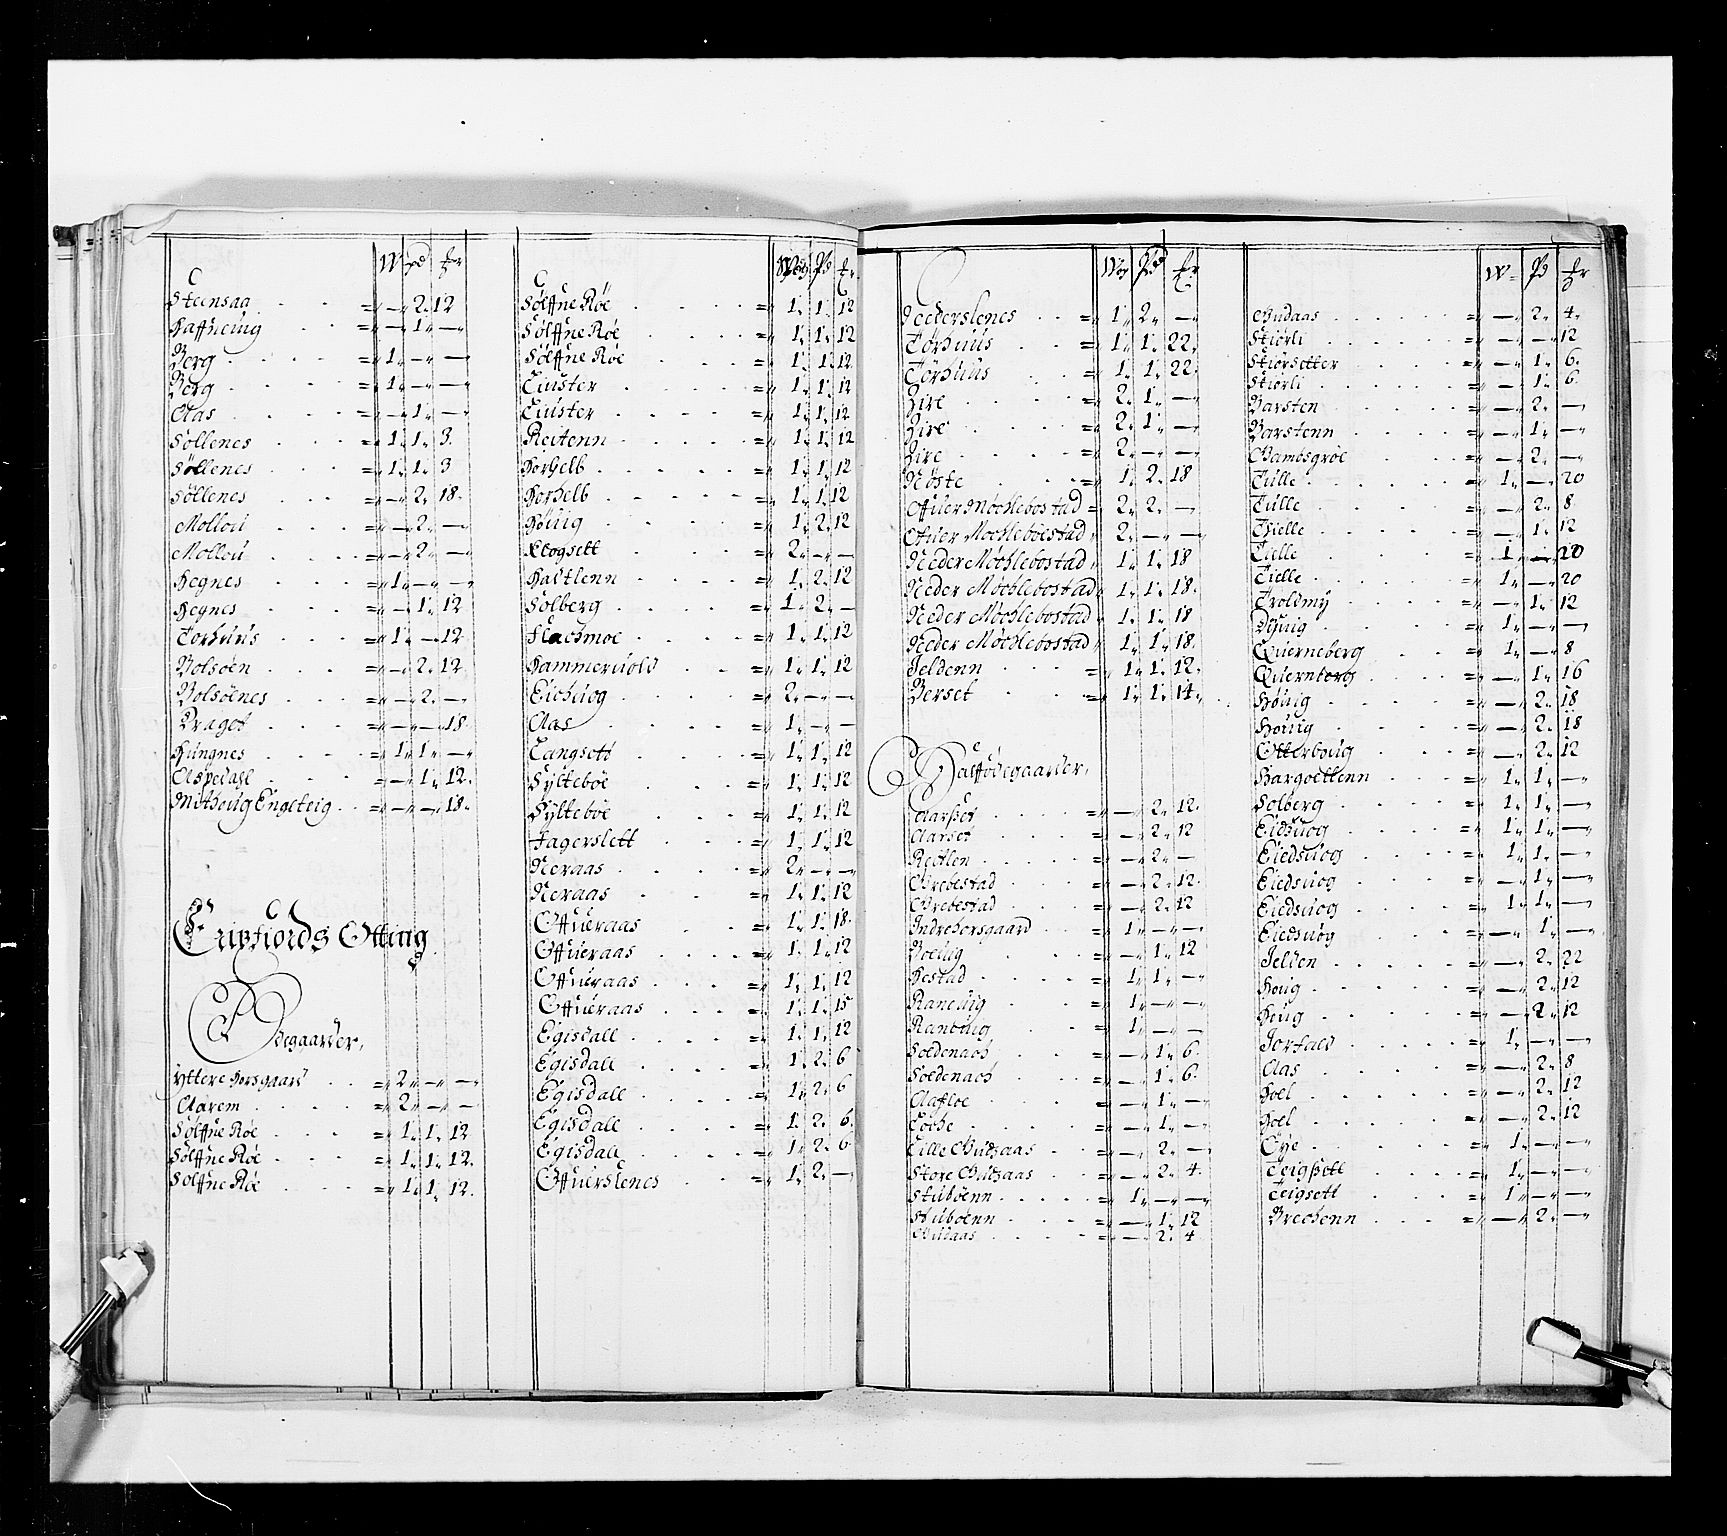 W pd
Steensaa = — 2 12
Haffneüng = — 1 —
Berg = 1 — —
Berg = 1 — —
Aas = — 1 —
Söllenes = 1 1 3
Söllenes = 1 1 3
Söllenes = — 2 18
Molloü = — 2 —
Molloü = — 2 —
Hegnes = 1 — —
Hegnes = — 1 12
Torhuüs = 1 — 12
Bolsöen = — 2 12
Bolsöenes = — 2 —
Dragot = — — 18
Hüngnes = 1 1 —
Aspedall = — 1 12
Mithoug Engeteig = — — 18
Erisfiords Otting
Ödegaarder,
Yttere Horsgaard = 2 — —
Aarem = 2 — —
Sölffne Röe = 1 1 12
Sölffne Röe = 1 1 12
Sölffne Röe = 1 1 12
Wog Pd
Sölffne Röe = 1 1 12
Sölffne Röe = 1 1 12
Sölffne Röe = 1 1 12
Liüster = 1 1 12
Liüster = 1 1 12
Reitenn = 1 1 12
Horhelb = 1 1 12
Horhelb = 1 1 12
Höüig = 1 2 12
Klogsett = 2 — —
Hastlenn = 1 2 12
Solberg = 1 2 —
Flachmoe = 1 1 12
Hammeruold = 1 1 12
Eichuog = 2 — —
Aas = 1 — —
Langsett = 1 1 12
Sylteböe = 1 1 12
Sylteböe = 1 1 12
Fagerslett = 1 1 12
Neraas = 2 — —
Neraas = 1 1 12
Offüeraas = 1 1 18
Offüeraas = 1 1 12
Offüeraas = 1 1 12
Offüeraas = 1 1 15
Egisdall = 1 1 12
Egisdall = 1 2 6
Egisdall = 1 2 6
Egisdall = 1 2 6
Egisdall = 1 2 6
Offüerslenes = 1 2 —
Wog Pd
Nederslenes = 1 2 —
Torhuüs = 1 1 22
Torhuüs = 1 1 22
Vire = 2 1 —
Vire = 2 1 —
Vire = 2 — —
Nöste = 1 2 18
Ofuer Möchlebostad = 2 2 —
Ofuer Möchleboestad 2 — —
Neder Möchlebostad 1 1 18
Neder Möchlebostad 1 1 18
Neder Möchlebostad 1 1 18
Neder Möchlebostad 1 1 18
Jeldenn = 1 1 12
Berset = 1 1 14
Halfödegaarder,
Aarset = — 2 12
Aarset = — 2 12
Reitlen = — 2 —
Grebestad = — 2 12
Grebestad = — 2 12
Indrehorsgaard = 1 — —
Boeüig = — 1 12
Hestad = 1 1 —
Raneüig = 1 — —
Raneüig = 1 — —
Soedenach = — 1 6
Soedenach = — 1 6
Aafloe = — 1 —
Loche = — 1 —
Lille Gudzaas = — 2 —
Store Gudzaas = — 2 4
Stüböenn = 1 — —
Stüböenn = — 1 12
Gudaas = — 2 4
W Pd
Gudaas = — 2 4
Stiörli = — — 12
Stiörsetter = — 1 6
Stiörli = — 1 6
Barsten = — 2 —
Barstenn = — 1 —
Gamesgröe = — 2 —
Tülle = 1 — 20
Tülle = — 2 8
Tielle = — 1 12
Tielle = 1 — 20
Tielle = 1 — 20
Troldmÿ = — 1 12
= 1 — —
Querneberg = 1 — 8
Querneberg = — 1 16
Höüig = — 2 18
Höüig = — 2 18
Otterboug = — 2 12
Hargoettenn = 1 1 —
Solberg = 1 1 —
Eidsuog = 1 1 —
Eiedsuog = 1 1 —
Eiedsuog = — 1 —
Eiedsuog = 1 1 —
Eiedsuog = — 1 —
Jelden = — 2 22
Houg = — 2 12
Houg = — 2 12
Jorfald = 1 — —
Aas = — 2 8
Hoel = — 2 12
Hoel = — 2 12
= 1 — —
Teigsett = 1 — —
Teigsett = 1 — —
Brechenn = — 2 —